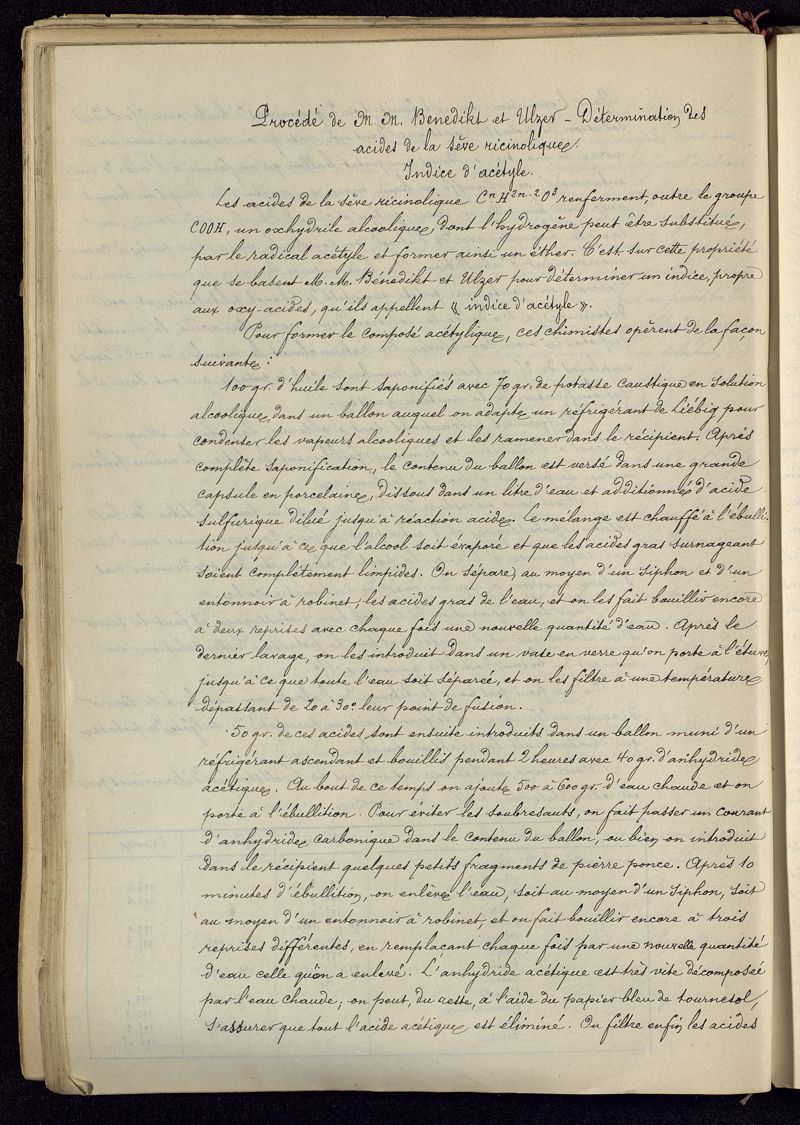 Procédé de M. M. Benedikt et Ulzer – Détermination des
acides de la sêve ricinolique.
Indice d'acétyle.
Les acides de la sêve ricinolique CⁿH²ⁿ⁻²O³ renferment, outre le groupe
COOH, un oxhydrile alcoolique, dont l'hydrogène peut être substitué,
par le radical acétyle et former ainsi un éther. C'est sur cette propriété
que se basent M. M. Bénédikt et Ulzer pour déterminer un indice, propre
aux oxy-acides, qu'ils appellent « indice d'acétyle ».
Pour former le composé acétylique, ces chimistes opèrent de la façon
suivante :
100 gr. d'huile sont saponifiés avec 70 gr. de potasse caustique en solution
alcoolique, dans un ballon auquel on adapte un réfrigérant de Liébig pour
condenser les vapeurs alcooliques et les ramener dans le récipient. Après
complète saponification, le contenu du ballon est versé dans une grande
capsule en porcelaine, dissous dans un litre d'eau et additionné d'acide
sulfurique dilué jusqu'à réaction acide. Le mélange est chauffé à l'ébulli-
tion jusqu'à ce que l'alcool soit évaporé et que les acides gras surnageant
soient complètement limpides. On sépare, au moyen d'un siphon et d'un
entonnoir à robinet, les acides gras de l'eau, et on les fait bouillir encore
à deux reprises avec chaque fois une nouvelle quantité d'eau. Après le
dernier lavage, on les introduit dans un vase en verre qu'on porte à l'étuve,
jusqu'à ce que toute l'eau soit séparée, et on les filtre à une température
dépassant de 20 à 30° leur point de fusion.
50 gr. de ces acides sont ensuite introduits dans un ballon muni d'un
réfrigérant ascendant et bouillis pendant 2 heures avec 40 gr. d'anhydride
acétique. Au bout de ce temps on ajoute 500 à 600 gr. d'eau chaude et on
porte à l'ébullition. Pour éviter les soubresauts, on fait passer un courant
d'anhydride carbonique dans le contenu du ballon, ou bien on introduit
dans le récipient quelques petits fragments de pierre ponce. Après 10
minutes d'ébullition, on enlève l'eau, soit au moyen d'un siphon, soit
au moyen d'un entonnoir à robinet, et on fait bouillir encore à trois
reprises différentes, en remplaçant chaque fois par une nouvelle quantité
d'eau celle qu'on a enlevé. L'anhydride acétique est très vite décomposée
par l'eau chaude ; on peut, du reste, à l'aide du papier bleu de tournesol,
s'assurer que tout l'acide acétique est éliminé. On filtre enfin les acides